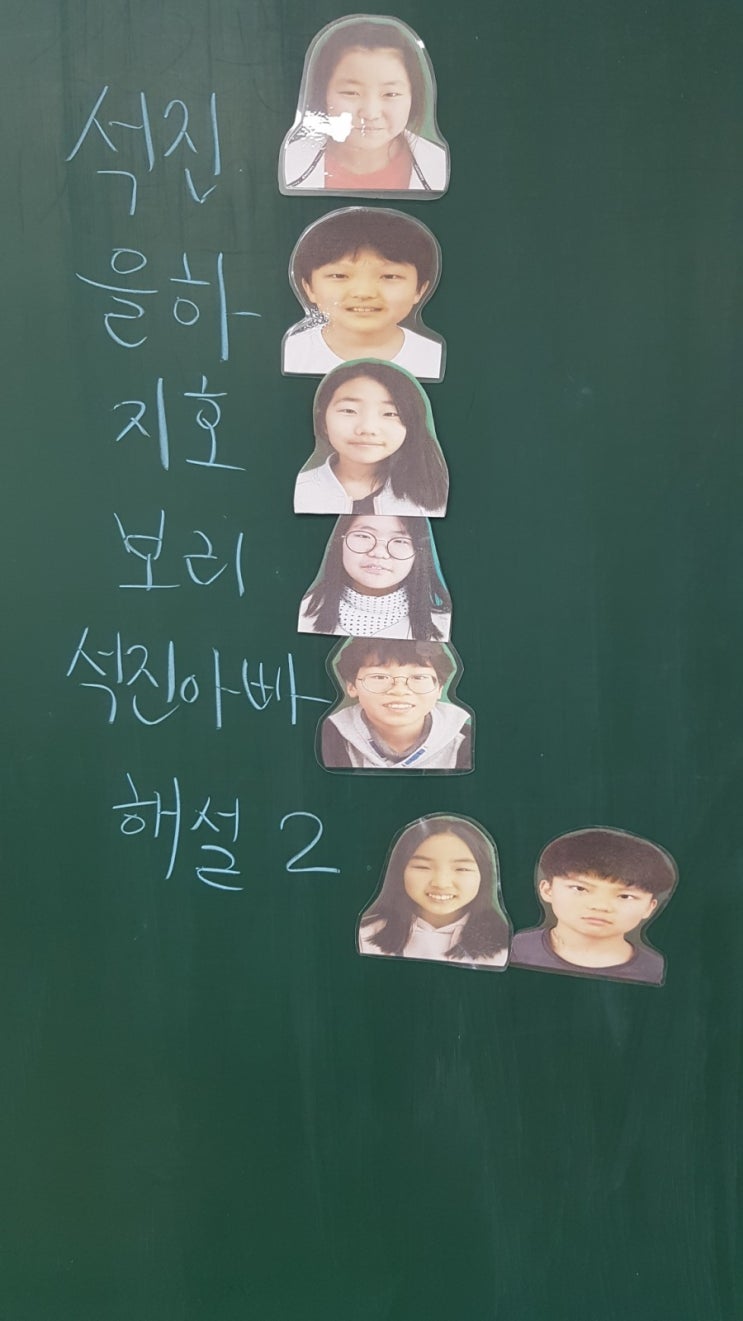 석진
을하
지호
보리
석진아빠
해설 2